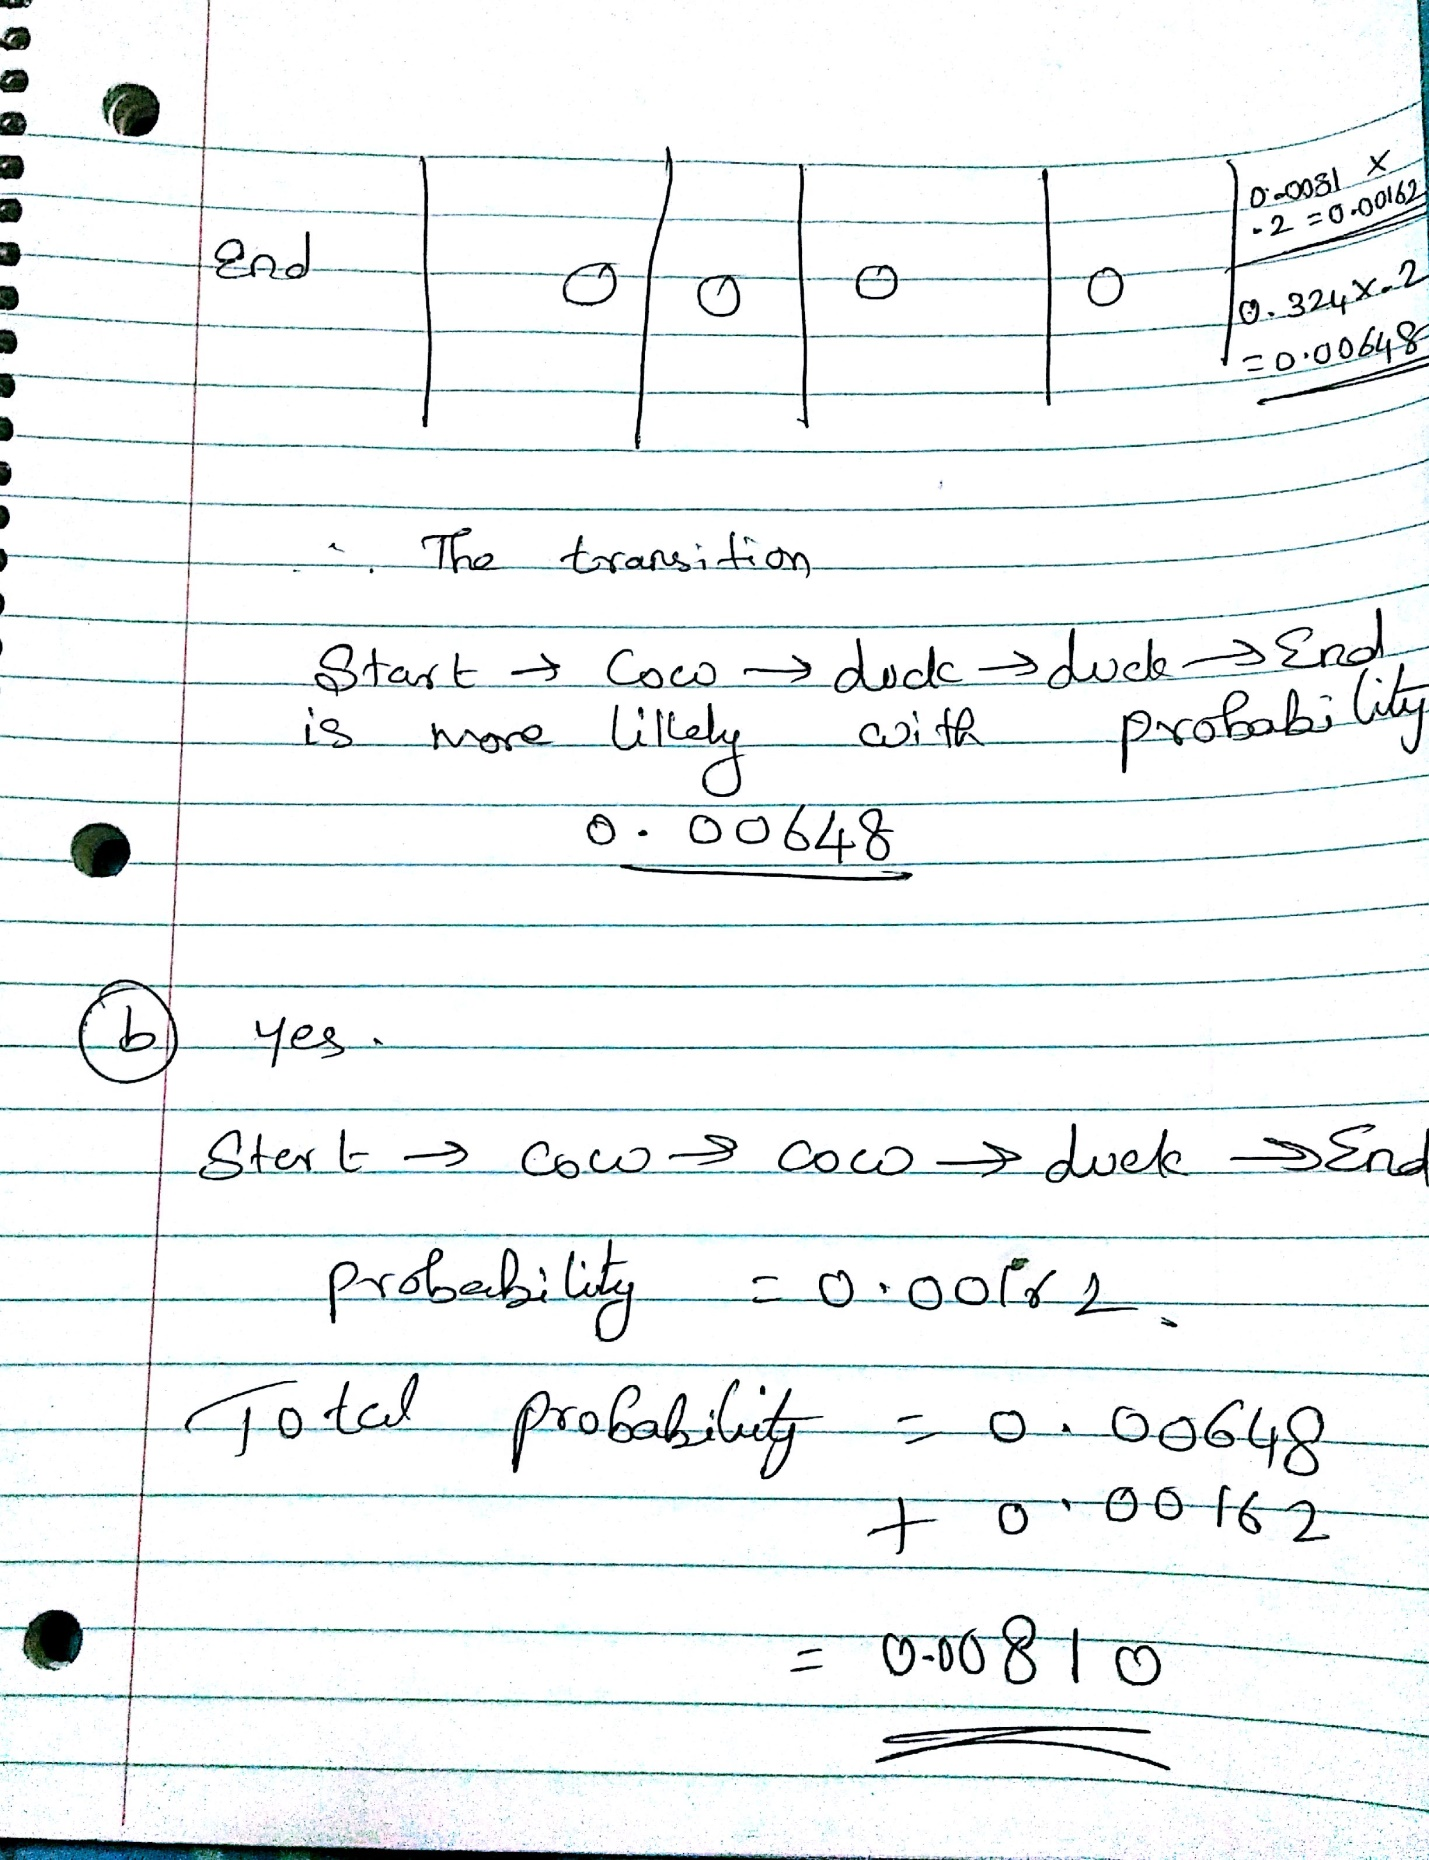 0.0081 x
.2 = 0.00162
End 0 0 0 0
0.324 x .2
= 0.00648
∴ The transition
Start → Cow → duck → duck → End
is more likely with probability
0.00648
b yes.
Start → cow → cow → duck → End
probability = 0.00162.
Total probability = 0.00648
+ 0.00162
= 0.00810